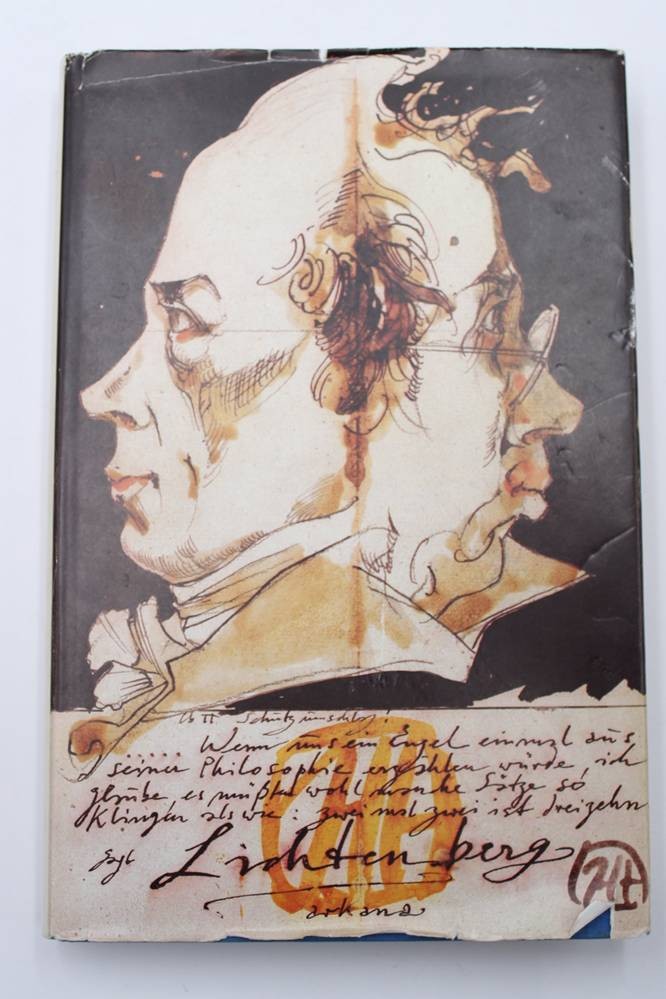 Schutzumschlag!
..... Wenn uns ein Engel einmal aus
seiner Philosophie erzählen würde, ich
glaube, es müßten wohl manche Sätze so
klingen als wie: zwei mal zwei ist dreizehn
sagt Lichtenberg
arkana